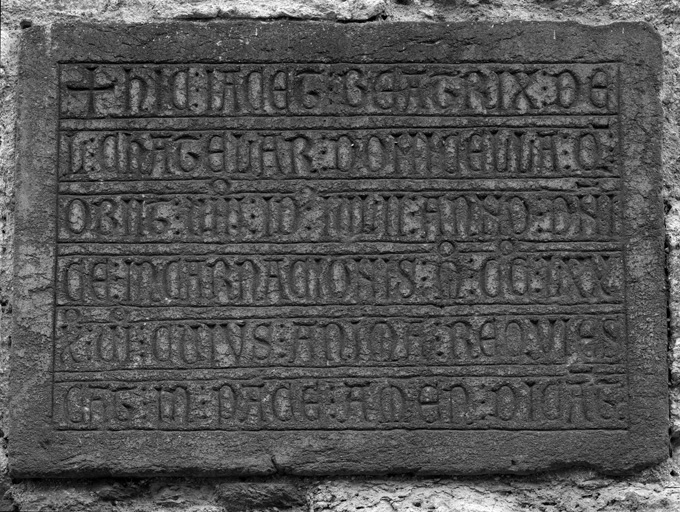 + HIC : IACET : BEATRIX : DE
: CHATELAR : DOMICELLA : Q
OBIIT : IIII : ID : IULII : ANNO : DNI
CE : INCARNACIOIS : M : CC : LXX
XVI : CUIVS : ANIMA : REQVIES
CAT : IN : PACE : AMEN : DICAT